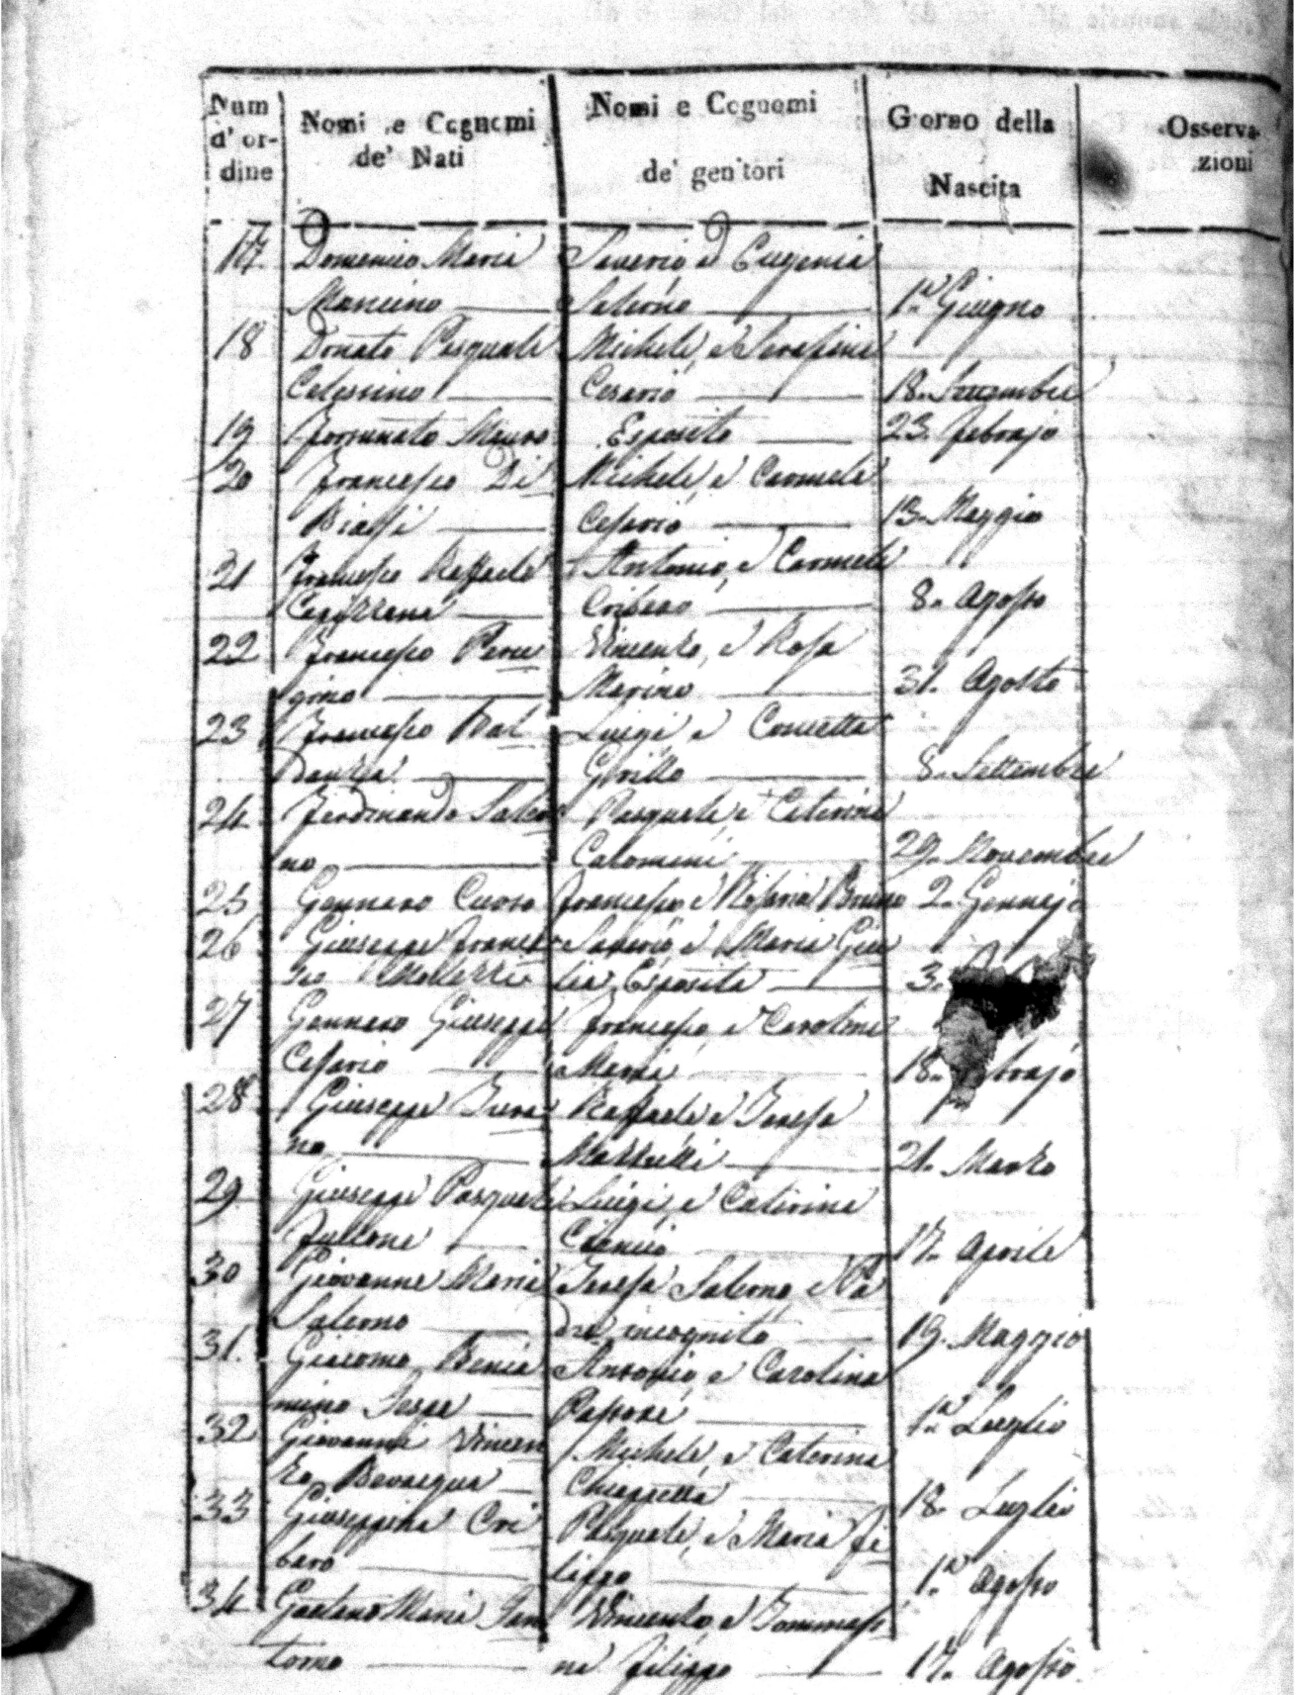 Num d'ordine
Nomi e Cognomi de' Nati
Nomi e Cognomi de' genitori
Giorno della Nascita
Osservazioni
17 Domenico Maria Saverio e Eugenia
Mancino Salerno 1º Giugno
18 Donato Pasquale Michele, e Serafina
Celestino Cesario 18. Settembre
19 Fortunato Mauro Esposito 23. Febrajo
20 Francesco Di Michele, e Carmela
Biasi Cesario 13. Maggio
21 Francesco Raffaele Antonio, e Carmela
Capizzana Cribaro 8. Agosto
22 Francesco Peru Vincenzo, e Rosa
gino Marino 31. Agosto
23 Francesco Bal Luigi e Concetta
danza Grillo 8. Settembre
24 Ferdinando Saler Pasquale, e Caterina
no Calomini 29. Novembre
25 Gennaro Cuoso Francesco e Rosaria Bruno 2. Gennajo
26 Giuseppe France Saverio, e Maria Giu
sco lia Esposito 3.
27 Gennaro Giuseppe Francesco, e Carolina
Cesario 18. brajo
28 Giuseppe Raffaele e Teresa
no Mazzulli 21. Marzo
29 Giuseppe Pasquale Luigi, e Caterina
Fullone 17. Aprile
30 Giovanne Maria Teresa Salerno, e Pa
Salerno dre incognito 19. Maggio
31. Giacomo Benia Antonio, e Carolina
mino 1º Luglio
32 Giovanni Vincen Michele, e Caterina
zo Bevacqua Chiappetta 18. Luglio
33 Giuseppina Cri Pasquale, e Maria Fi
baro lippo 1º Agosto
34 Gaetano Maria San Vincenzo, e Tommasi
torno na Filippo 17. Agosto